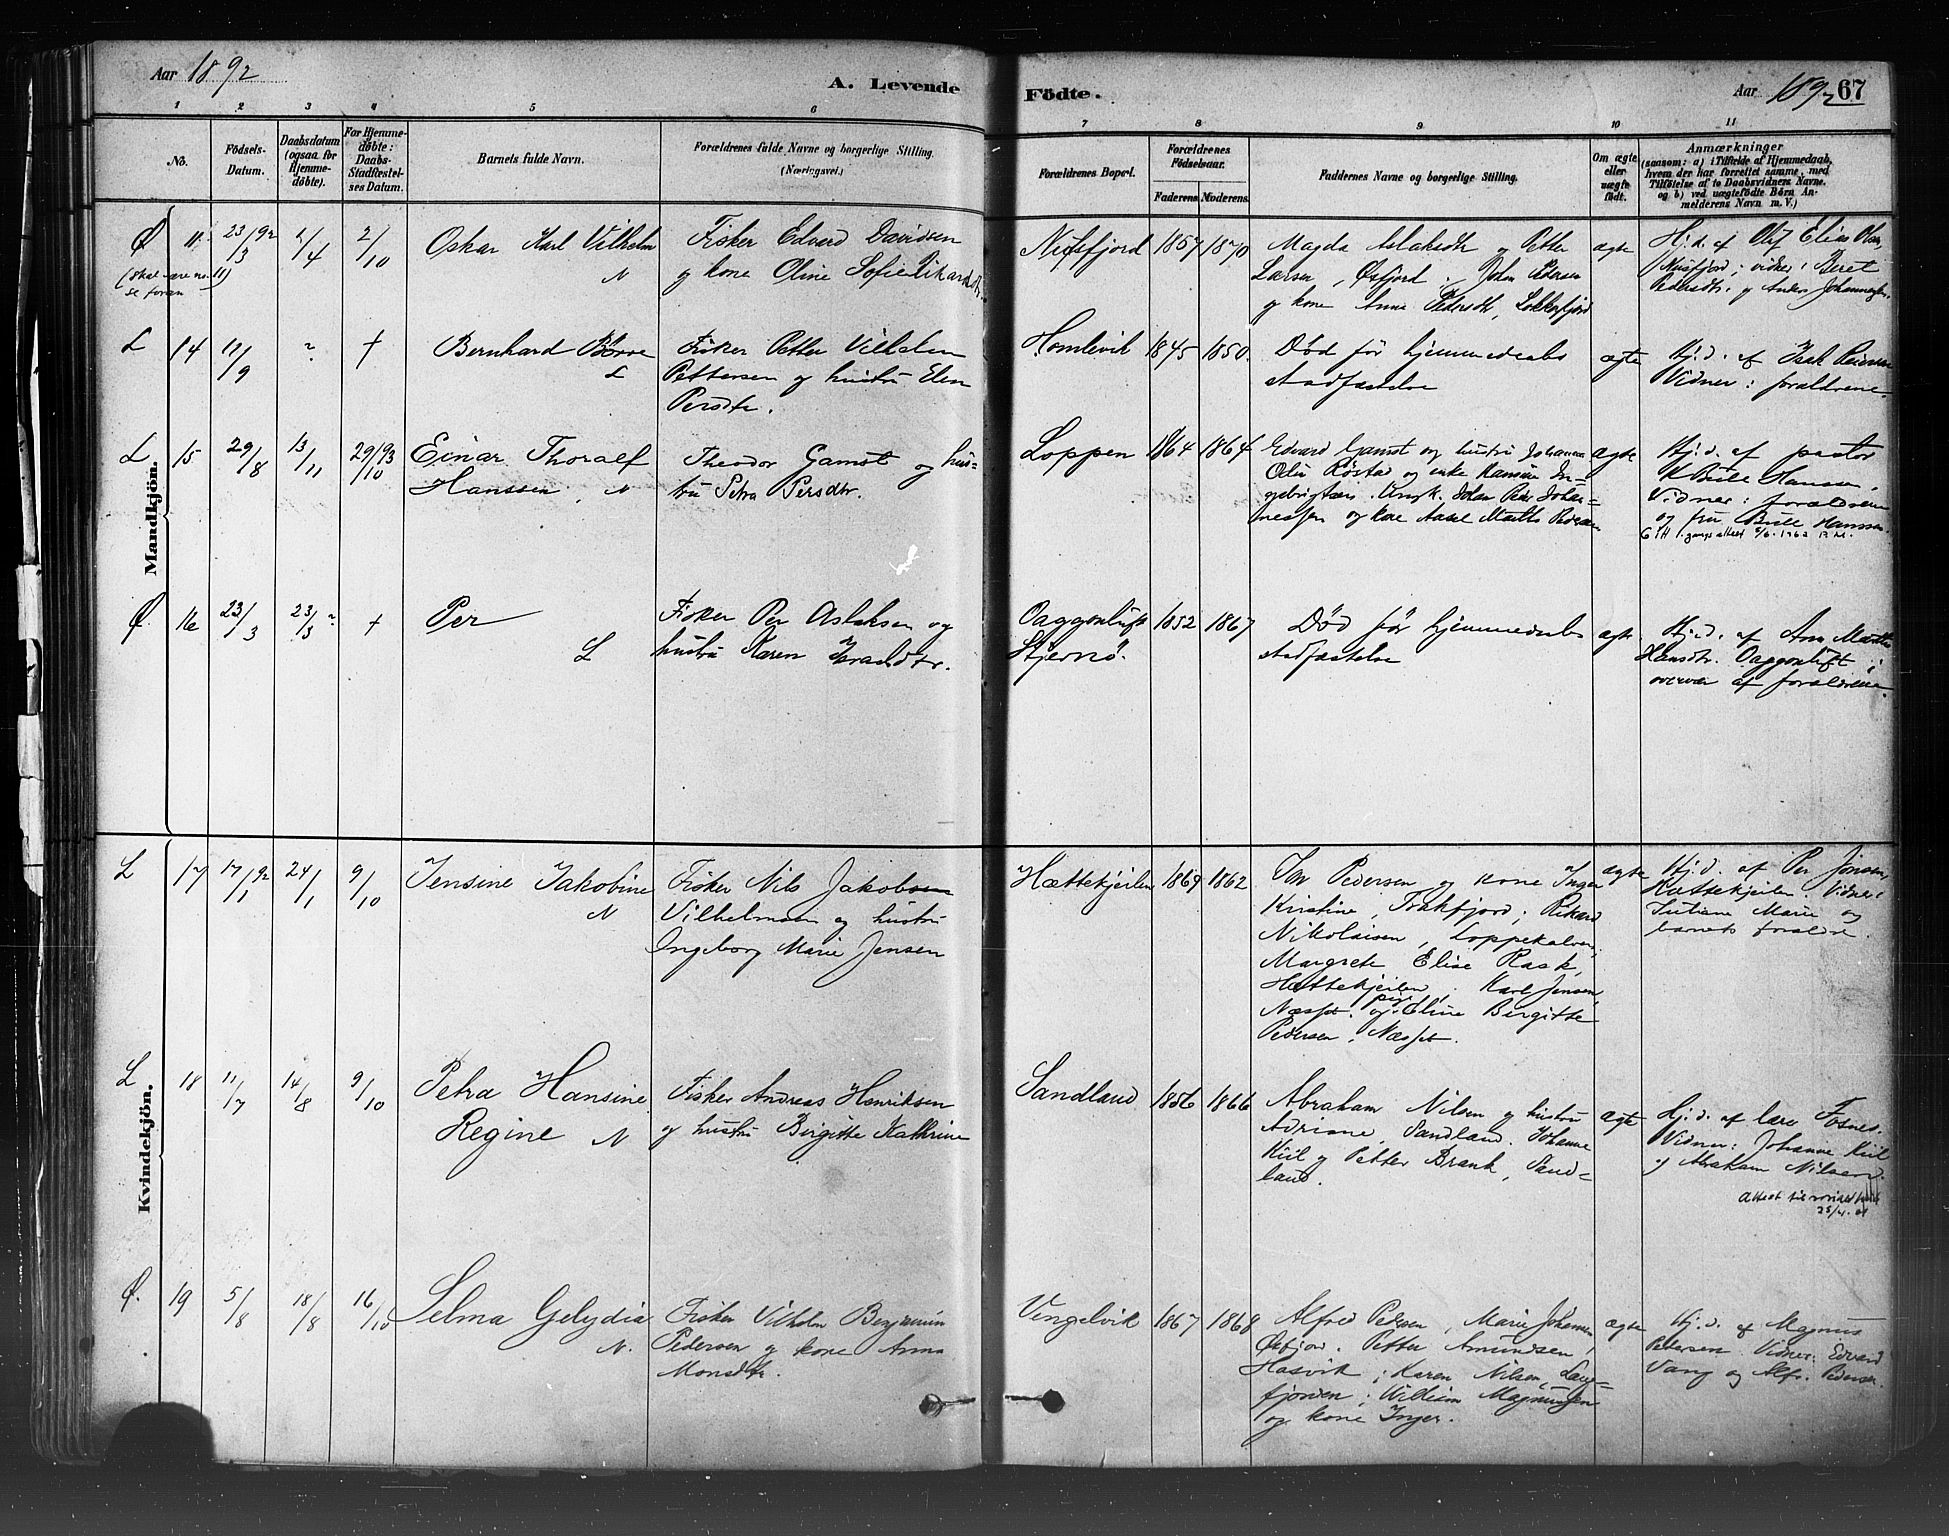 Aar 1892
A. Levende
Födte.
Aar 1892
67
1 2 3 4 5 6 7 8 9 10 11
No.
Födsels-
Datum.
Daabsdatum
(ogsaa for
Hjemme-
döbte).
For Hjemme-
döbte:
Daabs-
Stadfæstel-
ses Datum.
Barnets fulde Navn.
Forældrenes fulde Navne og borgerlige Stilling.
(Næringsvei.)
Forældrenes Bopæl.
Forældrenes
Födselsaar.
Faderens. Moderens.
Faddernes Navne og borgerlige Stilling.
Om ægte
eller
uægte
födt.
Anmærkninger
(saasom: a) i Tilfælde af Hjemmedaab,
hvem der har forrettet samme, med
Tilföielse af to Daabsvidners Navne,
og b) ved uægtefödte Börn An-
melderens Navn m. V.)
Mandkjön.
Ø 11.
(skal være no. 11)
se foran
23/3 92
/4
2/10
Oskar Karl Vilhelm
N
Fisker Edvard Davidsen
og kone Oline Sofie
1857 1870
Magda Aslaksdtr og Petter
Larsen, Øxfjord. John Pedersen
og kone Anne Pedersdtr,
ægte
Hj.d. af Olif Elias Olsen,
Nusfjord; vidner: Beret
Pedersdtr. og Anders Johannesen.
L 14
11/9
?
+
Bernhard
L
Fisker Petter Vilhelm
Pettersen og hustru Elen
Persdtr.
Homlevik
1845 1850.
Død før hjemmedaabs
stadfæstelse
ægte
Hj.d. af Isak
Vidner: forældrene.
L 15
29/8
13/11
29/10 93
Einar Thoralf
Hanssen. N
Theodor Gamst og hus-
tru Petra Persdtr.
Loppen
1864 1864
Edvard Gamst og hustru Johanna
Røstad og enke In-
gebrigtsen. Johan Peder Johan-
nessen og kone
ægte
Hj.d. af pastor
Bull Hansen.
Vidner: forældrene
og fru Bull Hanssen.
Ø. 16
23/3
23/3 ?
+
Per
L
Fisker Per Aslaksen og
hustru Karen
Stjernø.
1852 1867
Død før hjemmedaabs
stadfæstelse
ægte
Hj.d. af Ane
Hansdtr. i
overvær af forældrene.
Kvindekjön.
L 17
17/1 92
24/1
9/10
Jensine Jakobine
N
Fisker Nils Jakobsen
Vilhelmsen og hustru
Ingeborg Marie Jensen
Hættekjeilen
1869 1862
Pedersen og kone Inger
Kirstine, ; Rikard
Nikolaisen, Loppekalven;
Margrete Elise Rask,
Hættekjeilen. Karl Jensen,
og pige Eline Birgitte
Pedersen,
ægte
Hj.d. af Per Jonsen,
Hættekjeilen. Vidner:
Juliane Marie og
barnets forældre.
L 18
11/7
14/8
9/10
Petra Hansine
Regine N
Fisker Andreas Henriksen
og hustru Birgitte Kathrine
Sandland
1856 1866
Abraham Nilsen og hustru
Adriane, Sandland. Johanne
Kiil og Petter Brank, Sand-
land.
ægte
Hj.d. af lærer Fosnes.
Vidner: Johanne Kiil
og Abraham Nilsen.
Ø. 19
5/8
18/8
16/10
Selma Gelydia
N.
Fisker Vilhelm Benjamin
Pedersen og kone Anna
Monsdtr.
Vengelvik
1867 1868
Alfred Pedersen, Marie Johansen
Øxfjord. Petter Amundsen,
Hasvik; Karen Nilsen, Lang-
fjorden; William Magnussen
og kone Inger.
ægte
Hj.d. af Magnus
Petersen. Vidner: Edvard
Vang og Alfr. Pedersen.